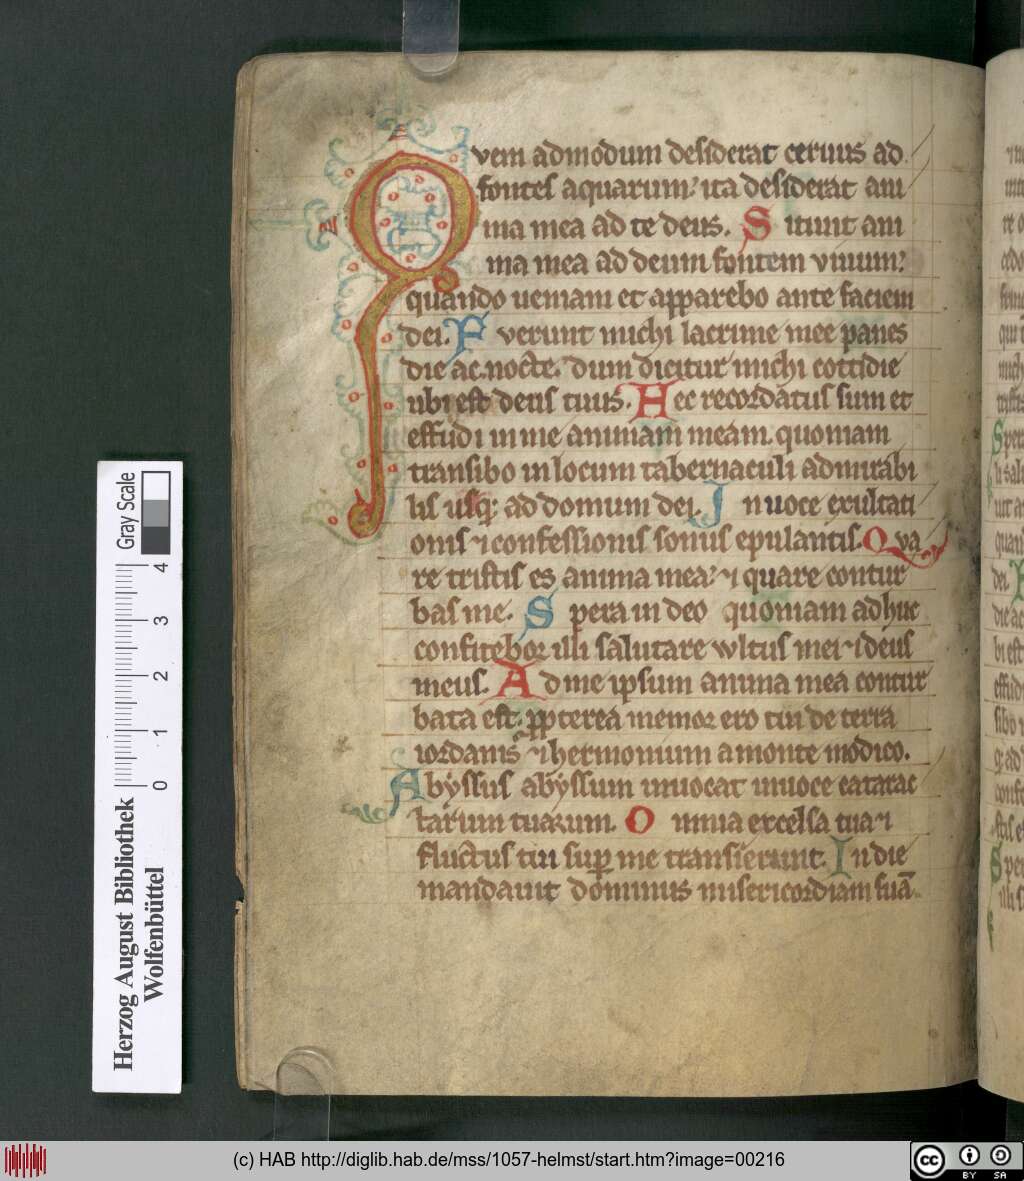 Quem admodum desiderat ceruus ad
fontes aquarum: ita desiderat ani
ma mea ad te deus. Sitiuit ani
ma mea ad deum fontem viuum:
quando ueniam et apparebo ante faciem
dei. Fverunt michi lacrime mee panes
die ac nocte. dum dicitur michi cottidie
ubi est deus tuus. Hec recordatus sum et
effudi in me animam meam. quoniam
transibo in locum tabernaculi admirabi
lis usq; ad domum dei. In uoce exultati
onis ⁊ confessionis sonus epulantis. Qva
re tristis es anima mea: ⁊ quare contur
bas me. Spera in deo quoniam adhuc
confitebor illi salutare wltus mei ⁊ deus
meus. Ad me ipsum anima mea contur
bata est. ꝓpterea memor ero tui de terra
iordanis ⁊ hermonium a monte modico.
Abyssus abyssum inuocat in uoce catarac
tarum tuarum. Omnia excelsa tua ⁊
fluctus tui suꝑ me transierunt. In die
mandauit dominus misericordiam suā.
Herzog August Bibliothek
Wolfenbüttel
0 1 2 3 4
Gray Scale
(c) HAB http://diglib.hab.de/mss/1057-helmst/start.htm?image=00216
cc BY SA